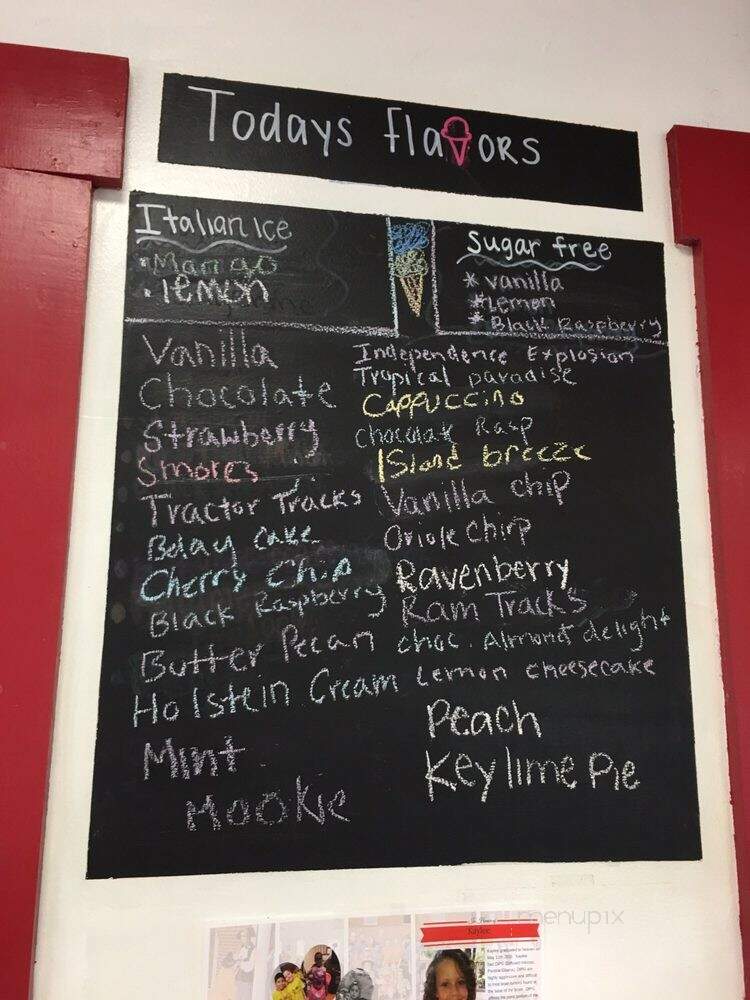 Todays flavors
Italian Ice
• Mango
• lemon
Sugar free
* vanilla
* Lemon
* Black Raspberry
Vanilla
Chocolate
Strawberry
Smores
Tractor Tracks
Bday Cake
Cherry Chip
Black Raspberry
Butter Pecan
Holstein Cream
Mint
Mookie
Independence Explosion
Tropical paradise
Cappuccino
Chocolate Rasp
ISland breeze
Vanilla chip
Oriole Chirp
Ravenberry
Ram Tracks
choc. Almond delight
Lemon cheesecake
Peach
Key lime Pie
menupix
Kaylee